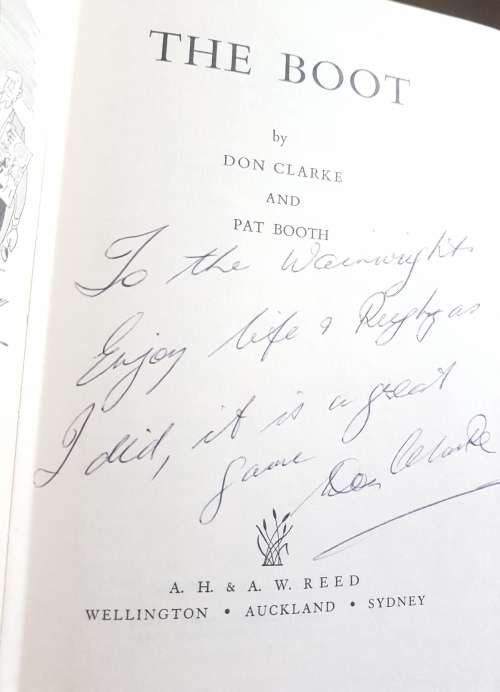 THE BOOT
by
DON CLARKE
AND
PAT BOOTH
To the Wainwrights
Enjoy life & Rugby as
I did, it is a great
game Don Clarke
A. H. & A. W. REED
WELLINGTON • AUCKLAND • SYDNEY